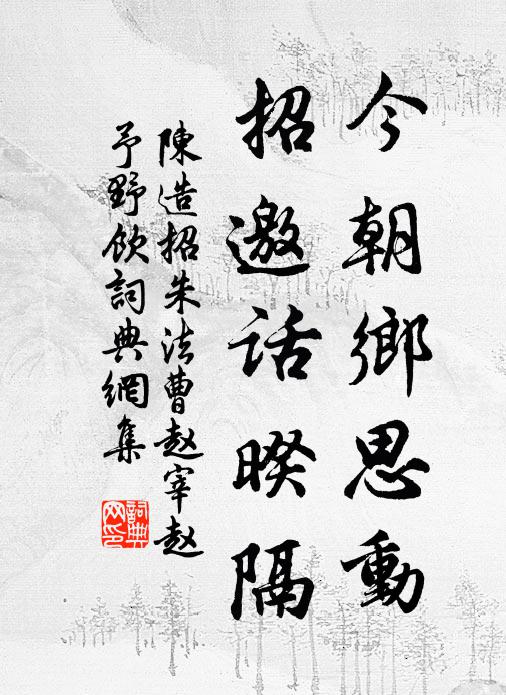 今朝鄉思動
招邀話暌隔
陳造招朱法曹趙宰趙
予野飲詞典網集
詞典
网印